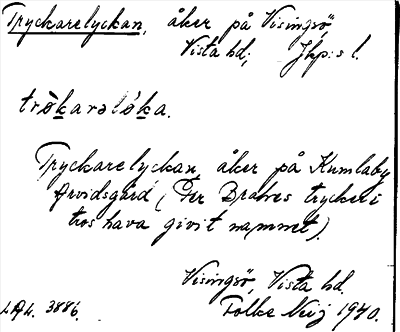 Tryckarelyckan, åker på Visingsö,
Vista hd, Jkp:s l.
trø̀karəlẏ̀ka.
Tryckarelyckan, åker på Kumlaby
Arvidsgård (Per Brahes tryckeri
tros hava givit namnet).
Visingsö, Vista hd
L.A.L. 3886. Folke Neij 1940.